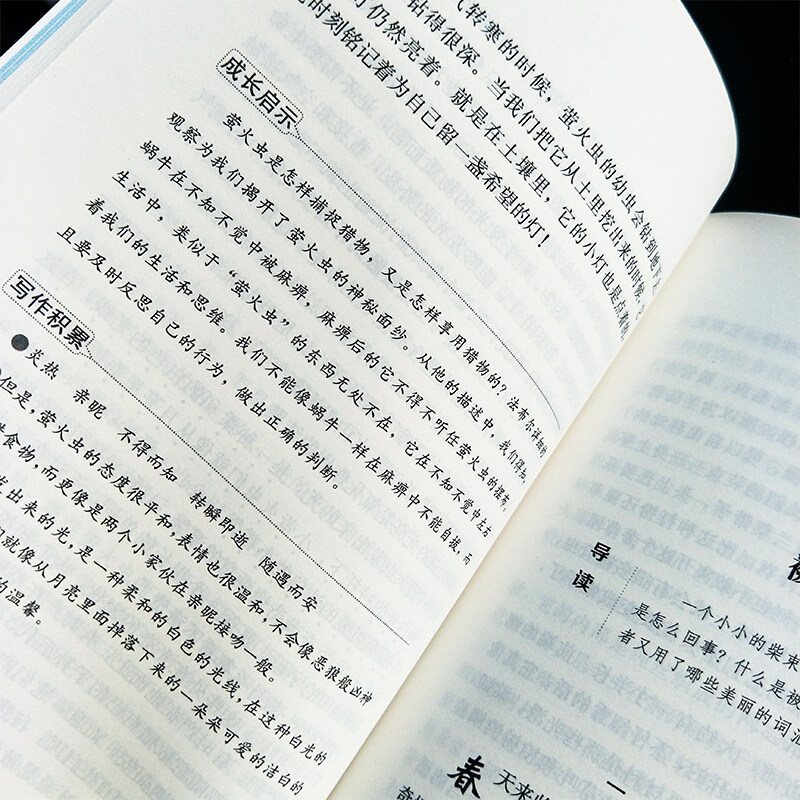 气转寒的时候，萤火虫的幼虫会钻到地下
钻得很深。当我们把它从土里挖出来的时候，
仍然亮着。就是在土壤里，它的小灯也是点着的，
时刻铭记着为自己留一盏希望的灯！
成长启示
萤火虫是怎样捕捉猎物，又是怎样享用猎物的？法布尔详细的
观察为我们揭开了萤火虫的神秘面纱。从他的描述中，我们得知，
蜗牛在不知不觉中被麻痹，麻痹后的它不得不听任萤火虫的摆布。
生活中，类似于“萤火虫”的东西无处不在，它在不知不觉中左右
着我们的生活和思维。我们不能像蜗牛一样在麻痹中不能自拔，而
且要及时反思自己的行为，做出正确的判断。
写作积累
●炎热 亲昵 不得而知 转瞬即逝 随遇而安
但是，萤火虫的态度很平和，表情也很温和，不会像恶狼般凶神
食物，而更像是两个小家伙在亲昵接吻一般。
出来的光，是一种柔和的白色的光线，在这种白光的
就像从月亮里面掉落下来的一朵朵可爱的洁白的
的温馨。
导读
一个小小的柴束
是怎么回事？什么是被
者又用了哪些美丽的词汇
一
春
天来临